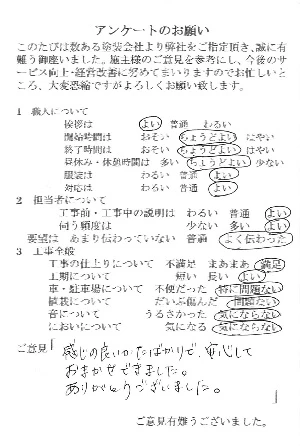 アンケートのお願い
このたびは数ある塗装会社より弊社をご指定頂き、誠に有
難う御座いました。施主様のご意見を参考にし、今後のサ
ービス向上・経営改善に努めてまいりますのでお忙しいと
ころ、大変恐縮ですがよろしくお願い致します。
1 職人について
挨拶は よい 普通 わるい
開始時間は おそい ちょうどよい はやい
終了時間は おそい ちょうどよい はやい
昼休み・休憩時間は 多い ちょうどよい 少ない
服装は わるい 普通 よい
対応は わるい 普通 よい
2 担当者について
工事前・工事中の説明は わるい 普通 よい
伺う頻度は 少ない 多い よい
要望は あまり伝わっていない 普通 よく伝わった
3 工事全般
工事の仕上りについて 不満足 まあまあ 満足
工期について 短い 長い よい
車・駐車場について 不便だった 特に問題ない
植栽について だいぶ傷んだ 問題ない
音について うるさかった 気にならない
においについて 気になる 気にならない
ご意見「
感じの良いかたばかりで、安心して
おまかせできました。
ありがとうございました。
」
ご意見有難うございました。